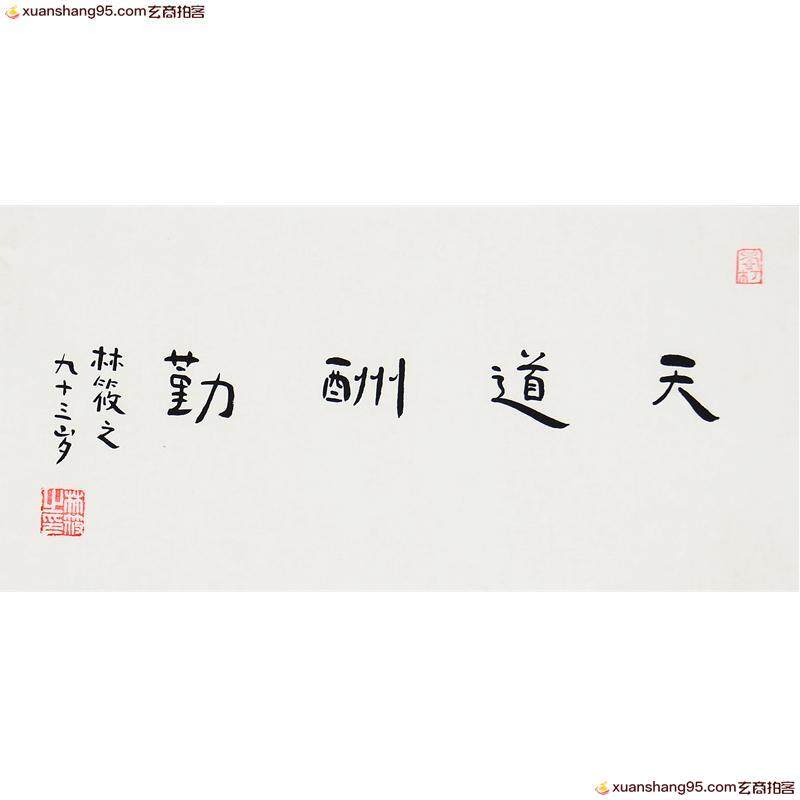 xuanshang95.com玄商拍客
天道酬勤
林筱之
九十三岁
林筱之印
xuanshang95.com玄商拍客